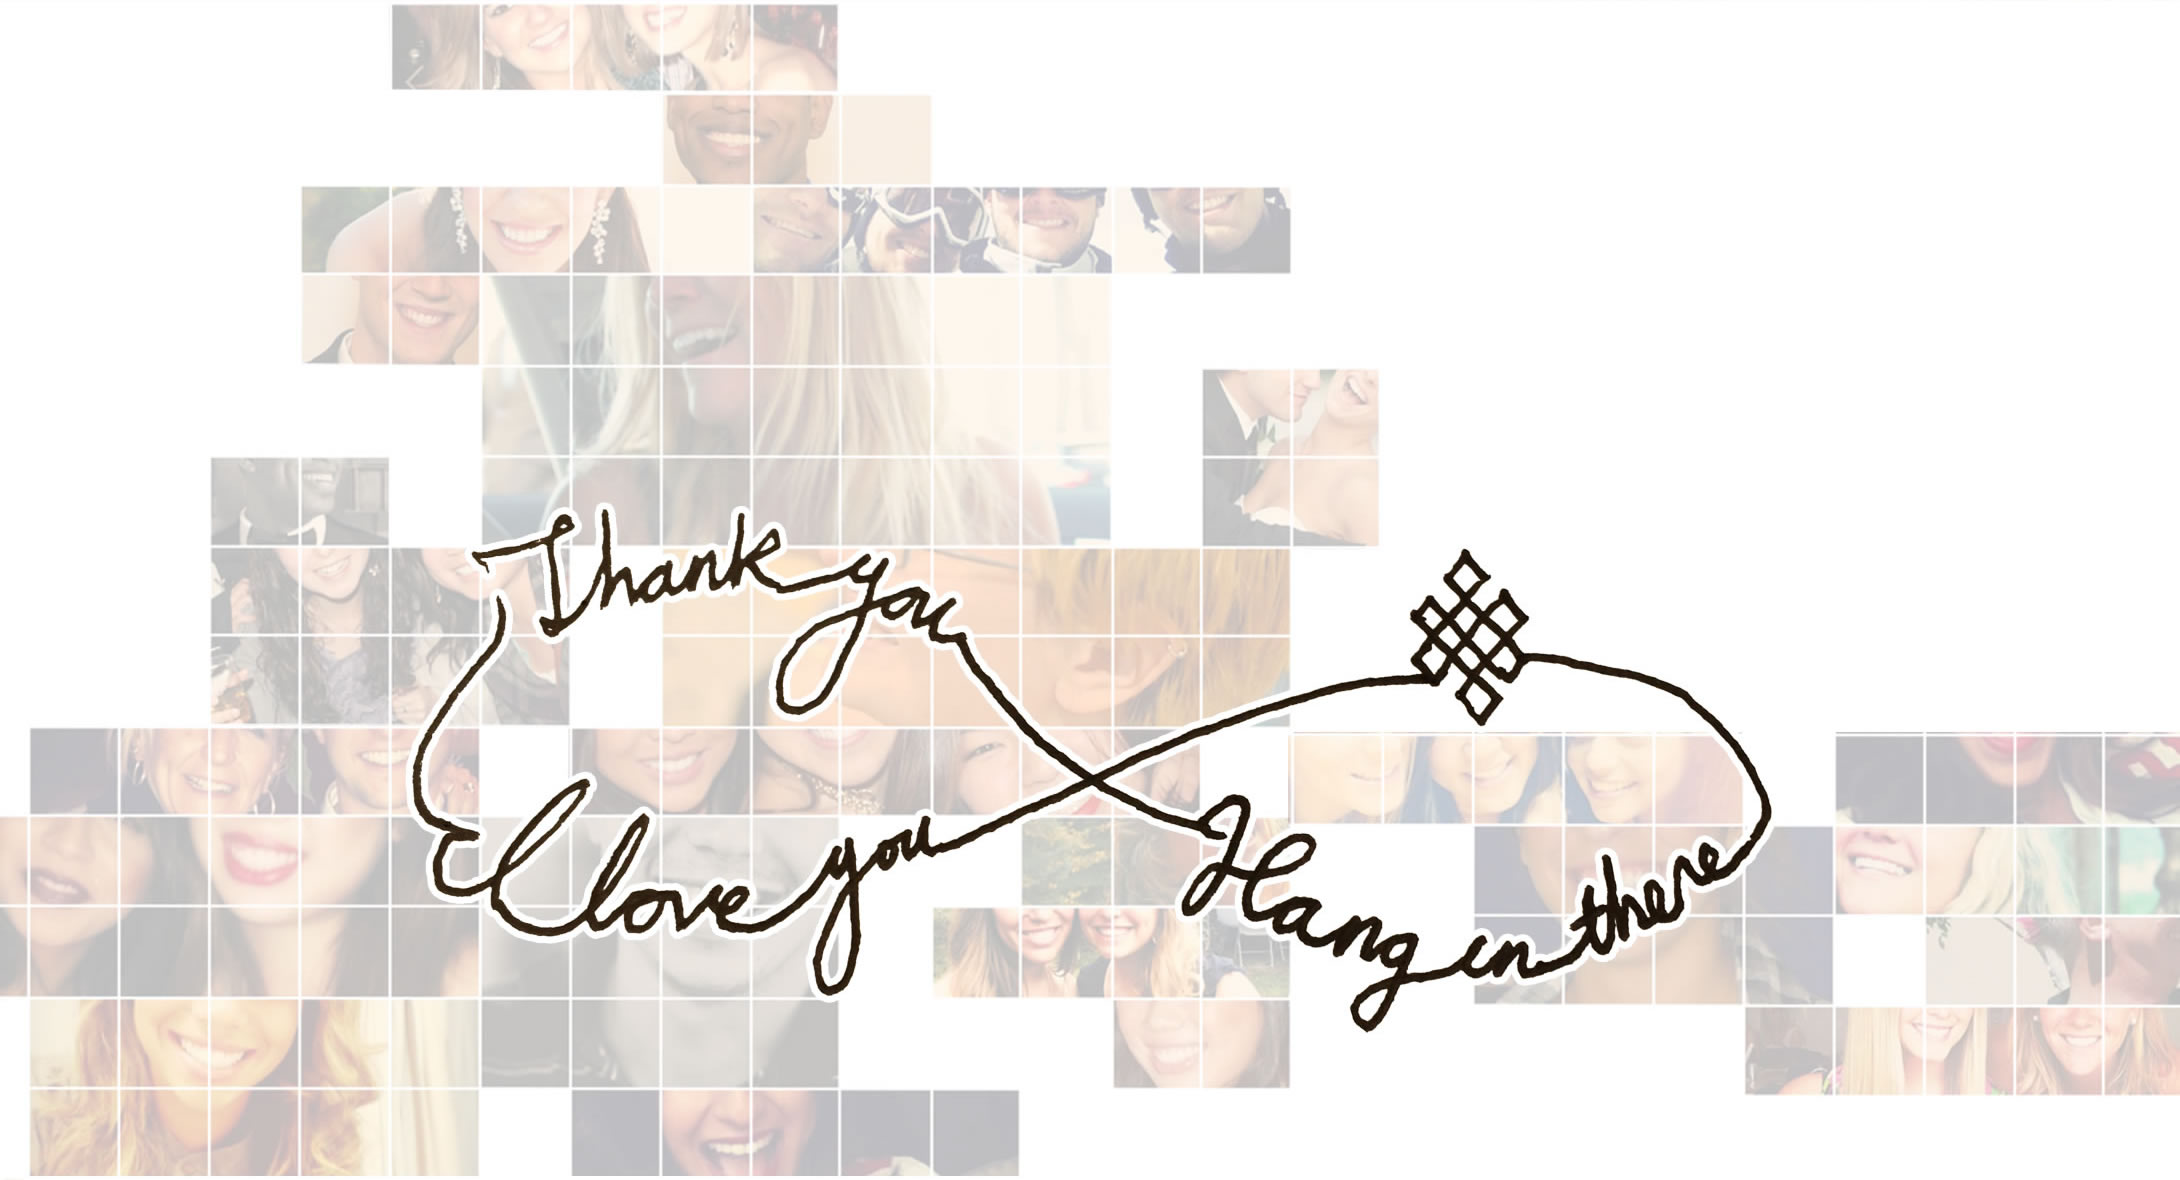 Thank you
I love you
Hang in there